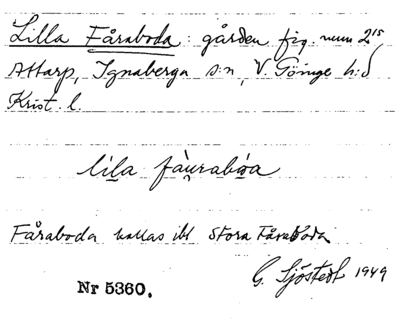 Lilla Fåraboda: gården fig. num 2¹⁵
Attarp, Ignaberga s:n, V. Göinge h:d
Krist. l.
lila fàurabѡa
Fåraboda kallas ibl Stora Fåraboda
G. Sjöstedt 1949
Nr 5360.